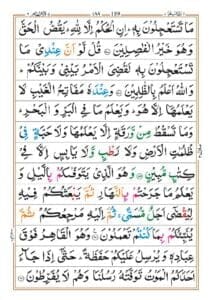 مَا تَسْتَعْجِلُوْنَ بِهٖ ؕ اِنِ الْحُكْمُ اِلَّا لِلّٰهِ ؕ يَقُصُّ الْحَقَّ
وَهُوَ خَيْرُ الْفٰصِلِيْنَ ۝ قُلْ لَّوْ اَنَّ عِنْدِيْ مَا
تَسْتَعْجِلُوْنَ بِهٖ لَقُضِيَ الْاَمْرُ بَيْنِيْ وَبَيْنَكُمْ ؕ
وَاللّٰهُ اَعْلَمُ بِالظّٰلِمِيْنَ ۝ وَعِنْدَهٗ مَفَاتِحُ الْغَيْبِ لَا
يَعْلَمُهَاۤ اِلَّا هُوَ ؕ وَيَعْلَمُ مَا فِي الْبَرِّ وَالْبَحْرِ ؕ
وَمَا تَسْقُطُ مِنْ وَّرَقَةٍ اِلَّا يَعْلَمُهَا وَلَا حَبَّةٍ فِيْ
ظُلُمٰتِ الْاَرْضِ وَلَا رَطْبٍ وَّلَا يَابِسٍ اِلَّا فِيْ
كِتٰبٍ مُّبِيْنٍ ۝ وَهُوَ الَّذِيْ يَتَوَفّٰىكُمْ بِالَّيْلِ وَ
يَعْلَمُ مَا جَرَحْتُمْ بِالنَّهَارِ ثُمَّ يَبْعَثُكُمْ فِيْهِ
لِيُقْضٰۤى اَجَلٌ مُّسَمًّى ۚ ثُمَّ اِلَيْهِ مَرْجِعُكُمْ ثُمَّ
يُنَبِّئُكُمْ بِمَا كُنْتُمْ تَعْمَلُوْنَ ۝ وَهُوَ الْقَاهِرُ فَوْقَ
عِبَادِهٖ وَيُرْسِلُ عَلَيْكُمْ حَفَظَةً ؕ حَتّٰۤى اِذَا جَآءَ
اَحَدَكُمُ الْمَوْتُ تَوَفَّتْهُ رُسُلُنَا وَهُمْ لَا يُفَرِّطُوْنَ ۝